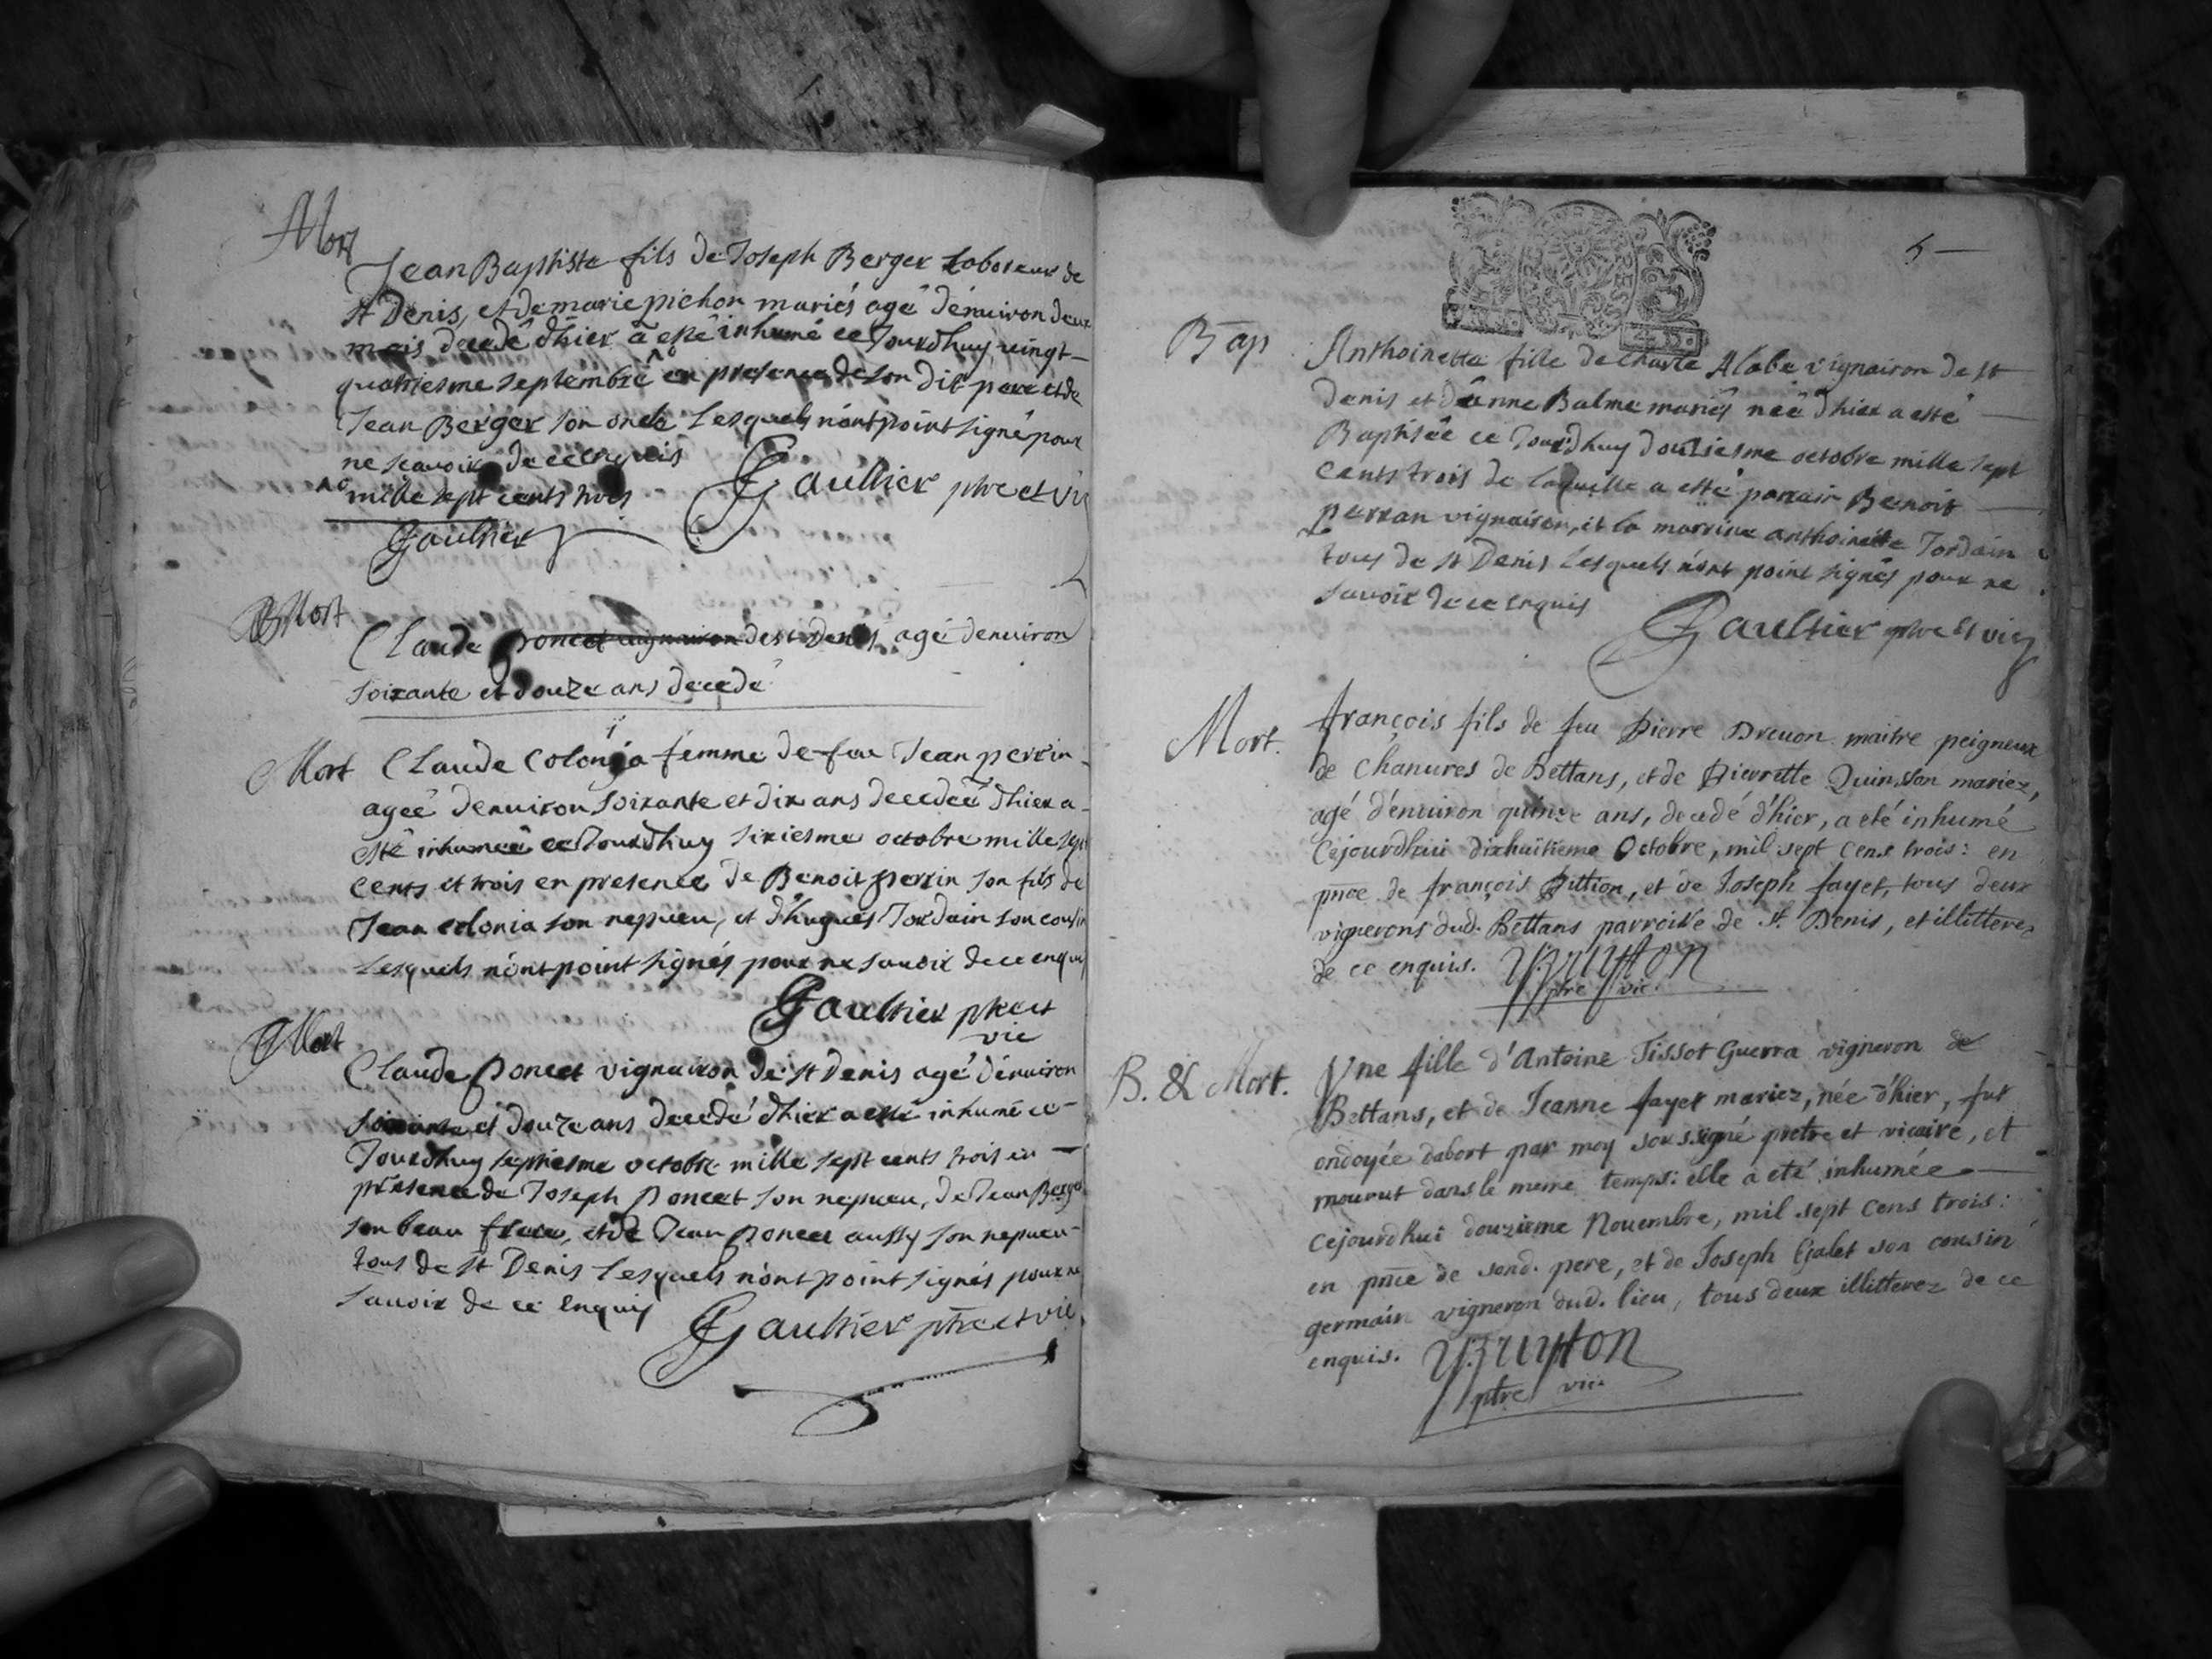 Mort
Jean Baptiste fils de Joseph Berger laboreur de
st Denis, et de marie pichon mariés agé d'enuiron deux
mois decedé d'hier a esté inhumé ce Jourdhuy vingt-
quatriesme septembre en presence de son dit pere et de
Jean Berger son oncle Lesquels n'ont point signé pour
ne scavoir de ce enquis Gaultier ptre et vic
mille sept cents trois
Gaultier
Mort
Claude poncet vignairon de st Denis agé denuiron
soixante et douze ans decedé
Mort Claude Colonia femme de feu Jean perrin
ageé denuiron soixante et dix ans decedeé d'hier a
esté inhumeé ce Jourdhuy sixiesme octobre mille sept
cents et trois en presence de Benoit perrin son fils de
Jean colonia son nepueu, et d'hugues Jordain son cousin
Lesquels n'ont point signés pour ne sauoir de ce enquis
Gaultier ptre et
vic
Mort
Claude poncet vignairon de st Denis agé d'enuiron
soixante et douze ans decedé d'hier a esté inhumé ce-
Jourdhuy septiesme octobre mille sept cents trois en
presence de Joseph poncet son nepueu, de Jean Berger
son beau frere, et de Jean poncet aussy son nepueu
tous de st Denis Lesquels n'ont point signés pour ne
sauoir de ce enquis
Gaultier ptre et vic
5
Bap Anthoinette fille de charle Alabe vignairon de st
denis et d'anne Balme mariés neé d'hier a esté
Baptisée ce Jourd'huy douziesme octobre mille sept
cents trois de laquelle a esté parrain Benoit
perran vignairon, et la marrine anthoinette Jordain
tous de st Denis Lesquels n'ont point signés pour ne
sauoir de ce enquis
Gaultier ptre et vic
Mort. françois fils de feu Pierre Dreuon maitre peigneur
de chanures de Bettans, et de Pierrette Quinson mariez,
agé d'enuiron quinze ans, decedé d'hier, a eté inhumé
Cejourdhui dixhuitieme Octobre, mil sept cens trois: en
pnce de françois Pittion, et de Joseph fayet, tous deux
vignerons dud. Bettans parroisse de St. Denis, et illitterez
de ce enquis. Bruyton
ptre vic.
B. & Mort. Vne fille d'Antoine Tissot Guerra vigneron de
Bettans, et de Jeanne fayet mariez, née d'hier, fut
ondoyée dabort par moy soussigné pretre et vicaire, et
mourut dans le meme temps: elle a eté inhumée
cejourdhui douzieme Nouembre, mil sept cens trois:
en pnce de sond. pere, et de Joseph Galet son cousin
germain vigneron dud. lieu, tous deux illitterez de ce
enquis. Bruyton
ptre vic.